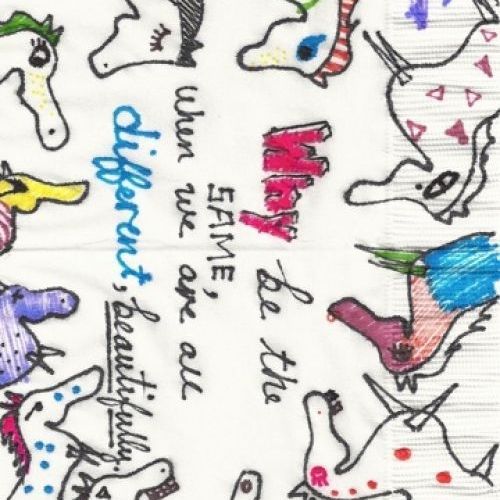 Why be the
SAME,
when we are all
different, beautifully.